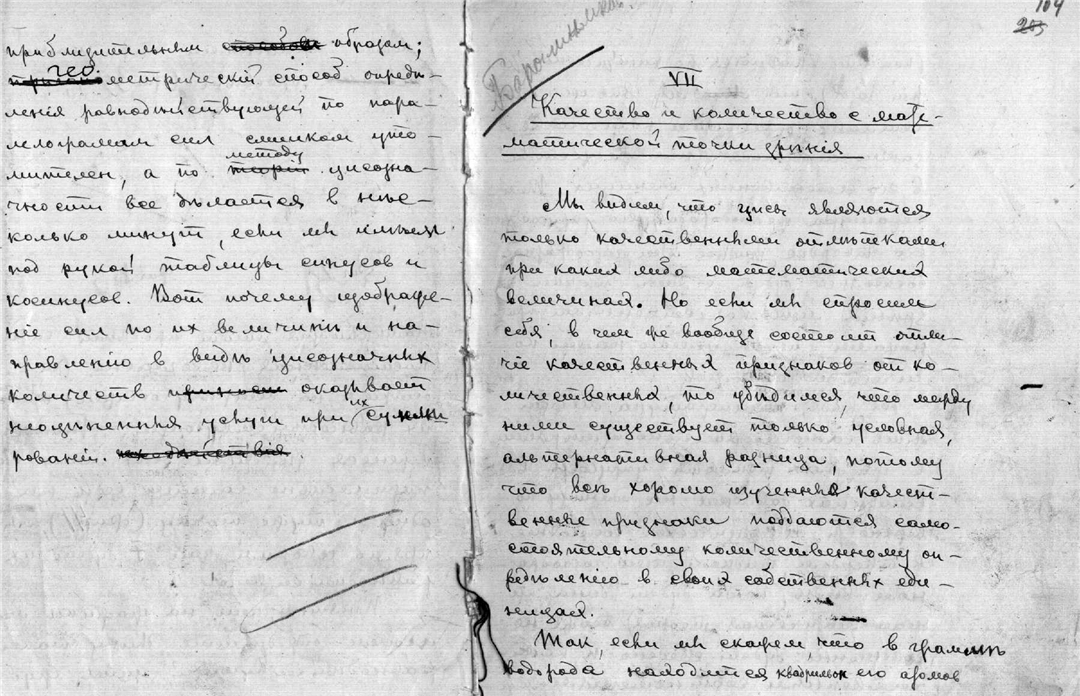 приблизительнымъ способомъ образом;
тригоно гео метрическій способ опредѣ-
ленія равнодѣйствующей по пара-
лелограмам сил слишком уто-
мителен, а по теоріи методу цисозна-
чности все дѣлается в нѣс-
колько минут, если мы имѣем
под рукой таблицы синусов и
косинусов. Вот почему изображе-
ніе сил по их величинѣ и на-
правленію в видѣ цисозначных
количеств приносит оказывает
неоцѣненныя услуги при их сумми
рованіи.
Баратынсков
104
205
VII
Качество и количество с мате-
матической точки зрѣнія
Мы видим, что цисы являются
только качественными отмѣтками
при каких либо математических
величинах. Но если мы спросим
себя, в чем же вообще состоит отли-
чіе качественных признаков от ко-
личественных, то убѣдимся, что между
ними существует только условная,
альтернативная разница, потому
что всѣ хорошо изученные качест-
венные признаки поддаются само-
стоятельному количественному оп-
редѣленію в своих собственных еди-
ницах.
Так, если мы скажем, что в граммѣ
водорода находится квадрильон его атомов